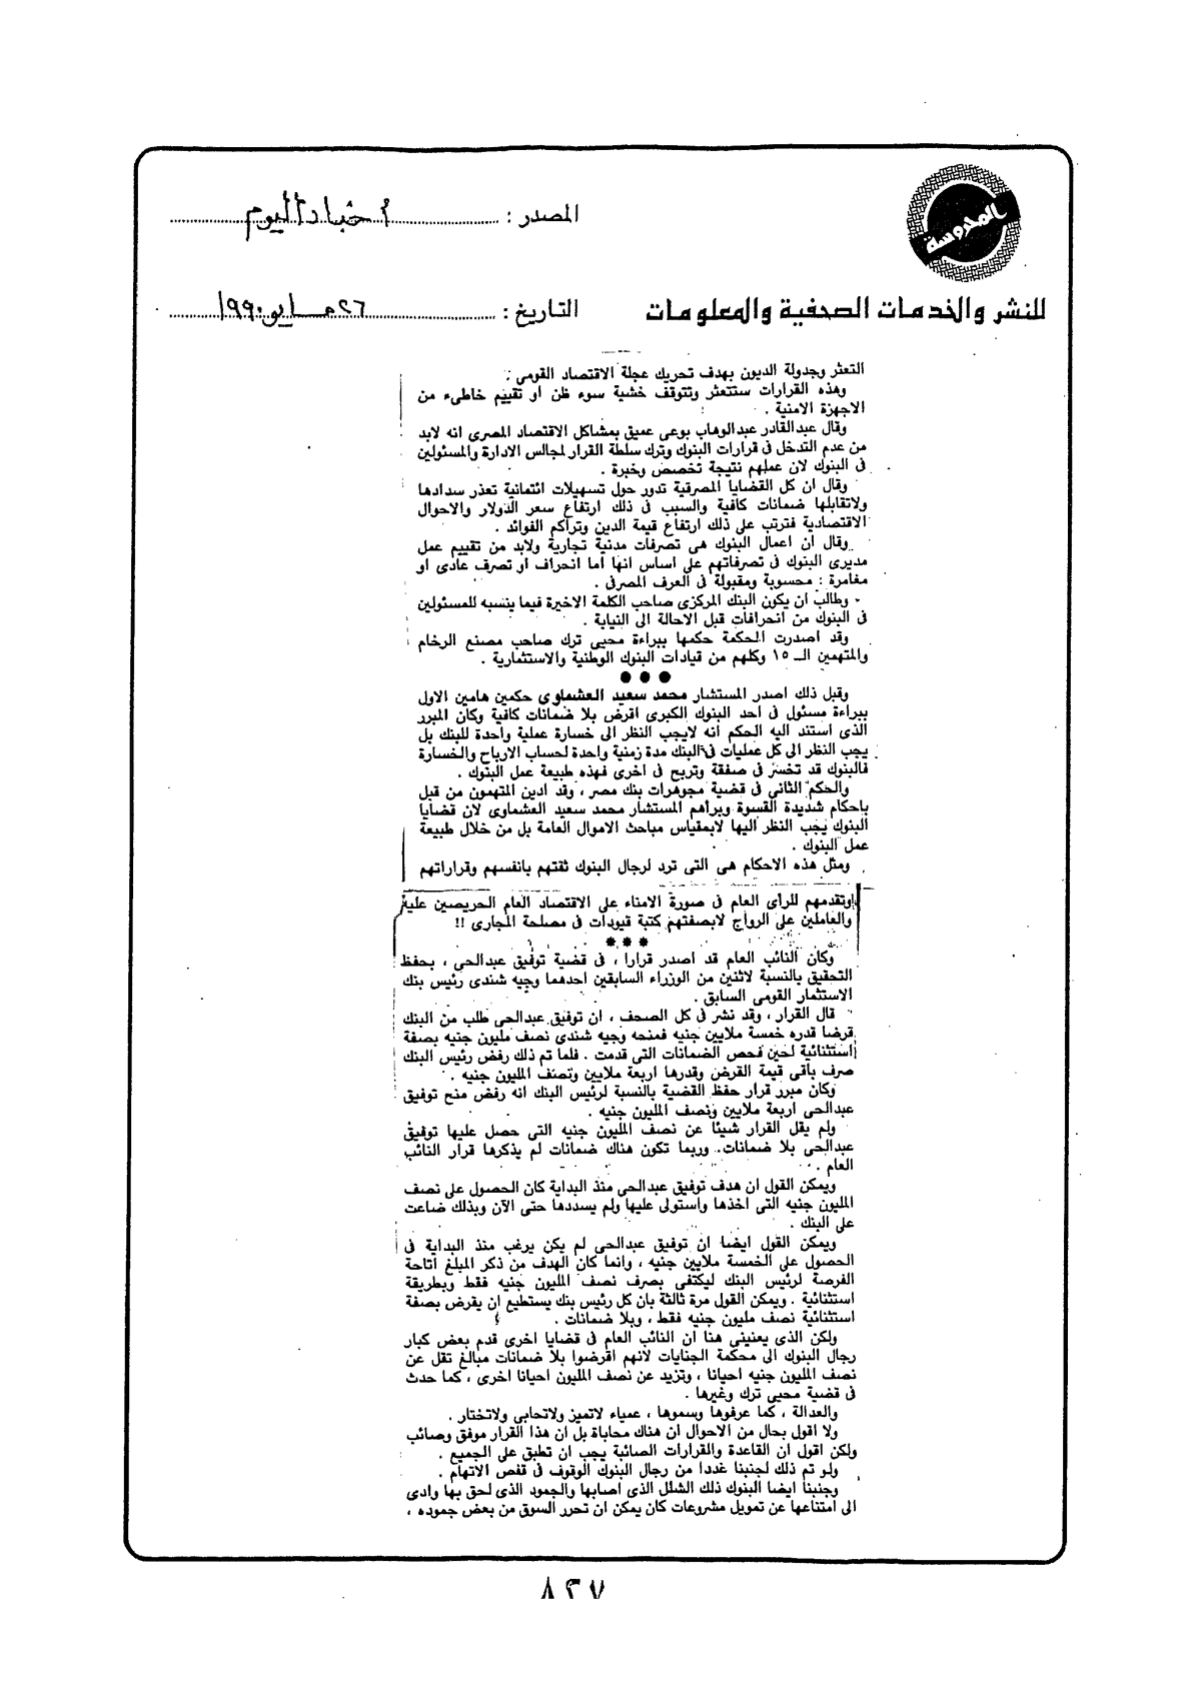 المحروسة
المصدر : أخبار اليوم
للنشر والخدمات الصحفية والمعلومات
التاريخ : ٢٦ مايو ١٩٩٠
التعثر وجدولة الديون بهدف تحريك عجلة الاقتصاد القومى .
وهذه القرارات ستتعثر وتتوقف خشية سوء ظن او تقييم خاطىء من
الاجهزة الامنية .
وقال عبدالقادر عبدالوهاب بوعى عميق بمشاكل الاقتصاد المصرى انه لابد
من عدم التدخل فى قرارات البنوك وترك سلطة القرار لمجالس الادارة والمسئولين
فى البنوك لان عملهم نتيجة تخصص وخبرة .
وقال ان كل القضايا المصرفية تدور حول تسهيلات ائتمانية تعذر سدادها
ولاتقابلها ضمانات كافية والسبب فى ذلك ارتفاع سعر الدولار والاحوال
الاقتصادية فترتب على ذلك ارتفاع قيمة الدين وتراكم الفوائد .
وقال ان اعمال البنوك هى تصرفات مدنية تجارية ولابد من تقييم عمل
مديرى البنوك فى تصرفاتهم على اساس انها اما انحراف او تصرف عادى او
مغامرة : محسوبة ومقبولة فى العرف المصرفى .
وطالب ان يكون البنك المركزى صاحب الكلمة الاخيرة فيما ينسبه للمسئولين
فى البنوك من انحرافات قبل الاحالة الى النيابة .
وقد اصدرت المحكمة حكمها ببراءة محيى ترك صاحب مصنع الرخام
والمتهمين الــ ١٥ وكلهم من قيادات البنوك الوطنية والاستثمارية .
● ● ●
وقبل ذلك اصدر المستشار محمد سعيد العشماوى حكمين هامين الاول
ببراءة مسئول فى احد البنوك الكبرى اقرض بلا ضمانات كافية وكان المبرر
الذى استند اليه الحكم انه لايجب النظر الى خسارة عملية واحدة للبنك بل
يجب النظر الى كل عمليات فى البنك مدة زمنية واحدة لحساب الارباح والخسارة
فالبنوك قد تخسر فى صفقة وتربح فى اخرى فهذه طبيعة عمل البنوك .
والحكم الثانى فى قضية مجوهرات بنك مصر ، وقد ادين المتهمون من قبل
باحكام شديدة القسوة وبرأهم المستشار محمد سعيد العشماوى لان قضايا
البنوك يجب النظر اليها لابمقياس مباحث الاموال العامة بل من خلال طبيعة
عمل البنوك .
ومثل هذه الاحكام هى التى ترد لرجال البنوك ثقتهم بانفسهم وقراراتهم
وتقدمهم للرأى العام فى صورة الامناء على الاقتصاد العام الحريصين عليه
والعاملين على الرواج لابصفتهم كتبة قيودات فى مصلحة المجارى !!
* * *
وكان النائب العام قد اصدر قرارا ، فى قضية توفيق عبدالحى ، بحفظ
التحقيق بالنسبة لاثنين من الوزراء السابقين احدهما وجيه شندى رئيس بنك
الاستثمار القومى السابق .
قال القرار ، وقد نشر فى كل الصحف ، ان توفيق عبدالحى طلب من البنك
قرضا قدره خمسة ملايين جنيه فمنحه وجيه شندى نصف مليون جنيه بصفة
استثنائية لحين فحص الضمانات التى قدمت . فلما تم ذلك رفض رئيس البنك
صرف باقى قيمة القرض وقدرها اربعة ملايين ونصف المليون جنيه .
وكان مبرر قرار حفظ القضية بالنسبة لرئيس البنك انه رفض منح توفيق
عبدالحى اربعة ملايين ونصف المليون جنيه .
ولم يقل القرار شيئا عن نصف المليون جنيه التى حصل عليها توفيق
عبدالحى بلا ضمانات. وربما تكون هناك ضمانات لم يذكرها قرار النائب
العام .
ويمكن القول ان هدف توفيق عبدالحى منذ البداية كان الحصول على نصف
المليون جنيه التى اخذها واستولى عليها ولم يسددها حتى الآن وبذلك ضاعت
على البنك .
ويمكن القول ايضا ان توفيق عبدالحى لم يكن يرغب منذ البداية فى
الحصول على الخمسة ملايين جنيه ، وانما كان الهدف من ذكر المبلغ اتاحة
الفرصة لرئيس البنك ليكتفى بصرف نصف المليون جنيه فقط وبطريقة
استثنائية . ويمكن القول مرة ثالثة بان كل رئيس بنك يستطيع ان يقرض بصفة
استثنائية نصف مليون جنيه فقط ، وبلا ضمانات .
ولكن الذى يعنينى هنا ان النائب العام فى قضايا اخرى قدم بعض كبار
رجال البنوك الى محكمة الجنايات لانهم اقرضوا بلا ضمانات مبالغ تقل عن
نصف المليون جنيه احيانا ، وتزيد عن نصف المليون احيانا اخرى ، كما حدث
فى قضية محيى ترك وغيرها .
والعدالة ، كما عرفوها وسموها ، عمياء لاتميز ولاتحابى ولاتختار .
ولا اقول بحال من الاحوال ان هناك محاباة بل ان هذا القرار موفق وصائب
ولكن اقول ان القاعدة والقرارات الصائبة يجب ان تطبق على الجميع .
ولو تم ذلك لجنبنا عددا من رجال البنوك الوقوف فى قفص الاتهام .
وجنبنا ايضا البنوك ذلك الشلل الذى اصابها والجمود الذى لحق بها وادى
الى امتناعها عن تمويل مشروعات كان يمكن ان تحرر السوق من بعض جموده ،
٨٢٧